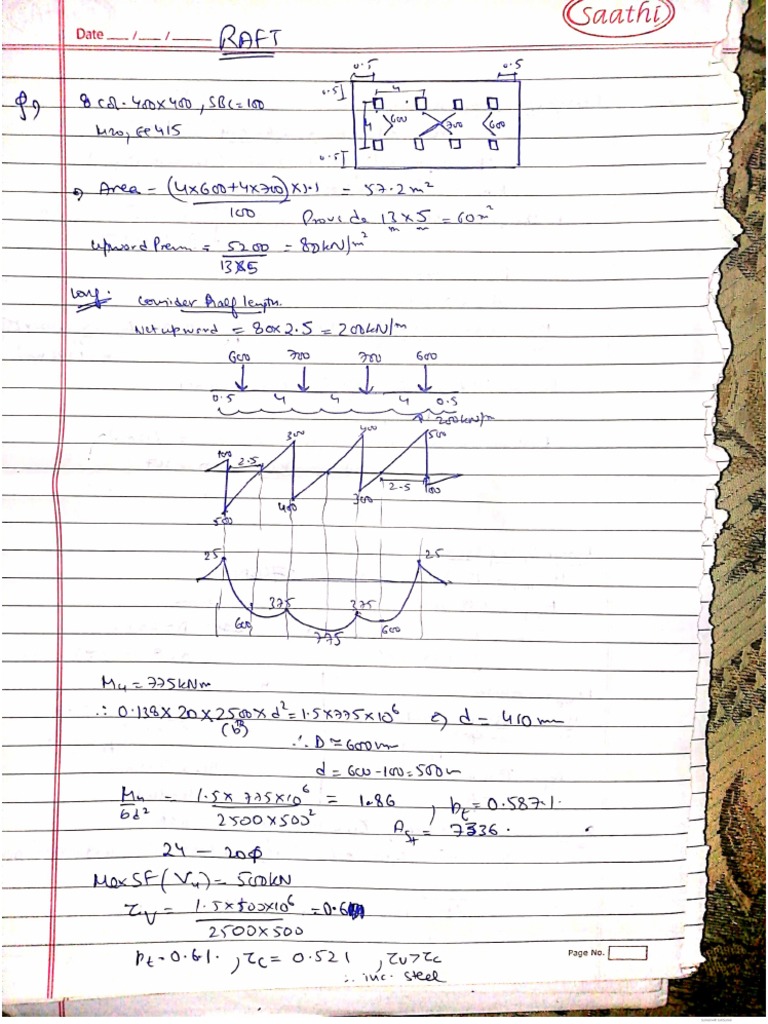 Saathi
Date __/__/__ RAFT
Q, 8 col. 400x400, SBC=100
M20, Fe415
0.5 0.5
0.5 4
4 600 700 600
0.5
Area = (4x600+4x700)x1.1 = 57.2m²
100
Provide 13 x 5 = 60m²
m m
Upward Prem = 5200 = 80kN/m²
13x5
Long. Consider half length.
Net upward = 80x2.5 = 200kN/m
600 700 700 600
0.5 4 4 4 0.5
200kN/m
100 2.5 300 400 500
500 400 300 2.5 100
25 25
600 375 775 375 600
Mu = 775kNm
∴ 0.138 x 20 x 2500 x d² = 1.5x775x10⁶ ⇒ d = 410mm
(b)
∴ D ≈ 600mm
d = 600-100=500m
Mu = 1.5x 775x10⁶ = 1.86 , pt = 0.587%
bd² 2500x500²
Ast = 7336.
24 — 20φ
Max SF (Vu) = 500kN
τv = 1.5x500x10⁶ = 0.6
2500x500
pt = 0.61. , τc = 0.521 , τv>τc
∴ inc. steel
Page No.